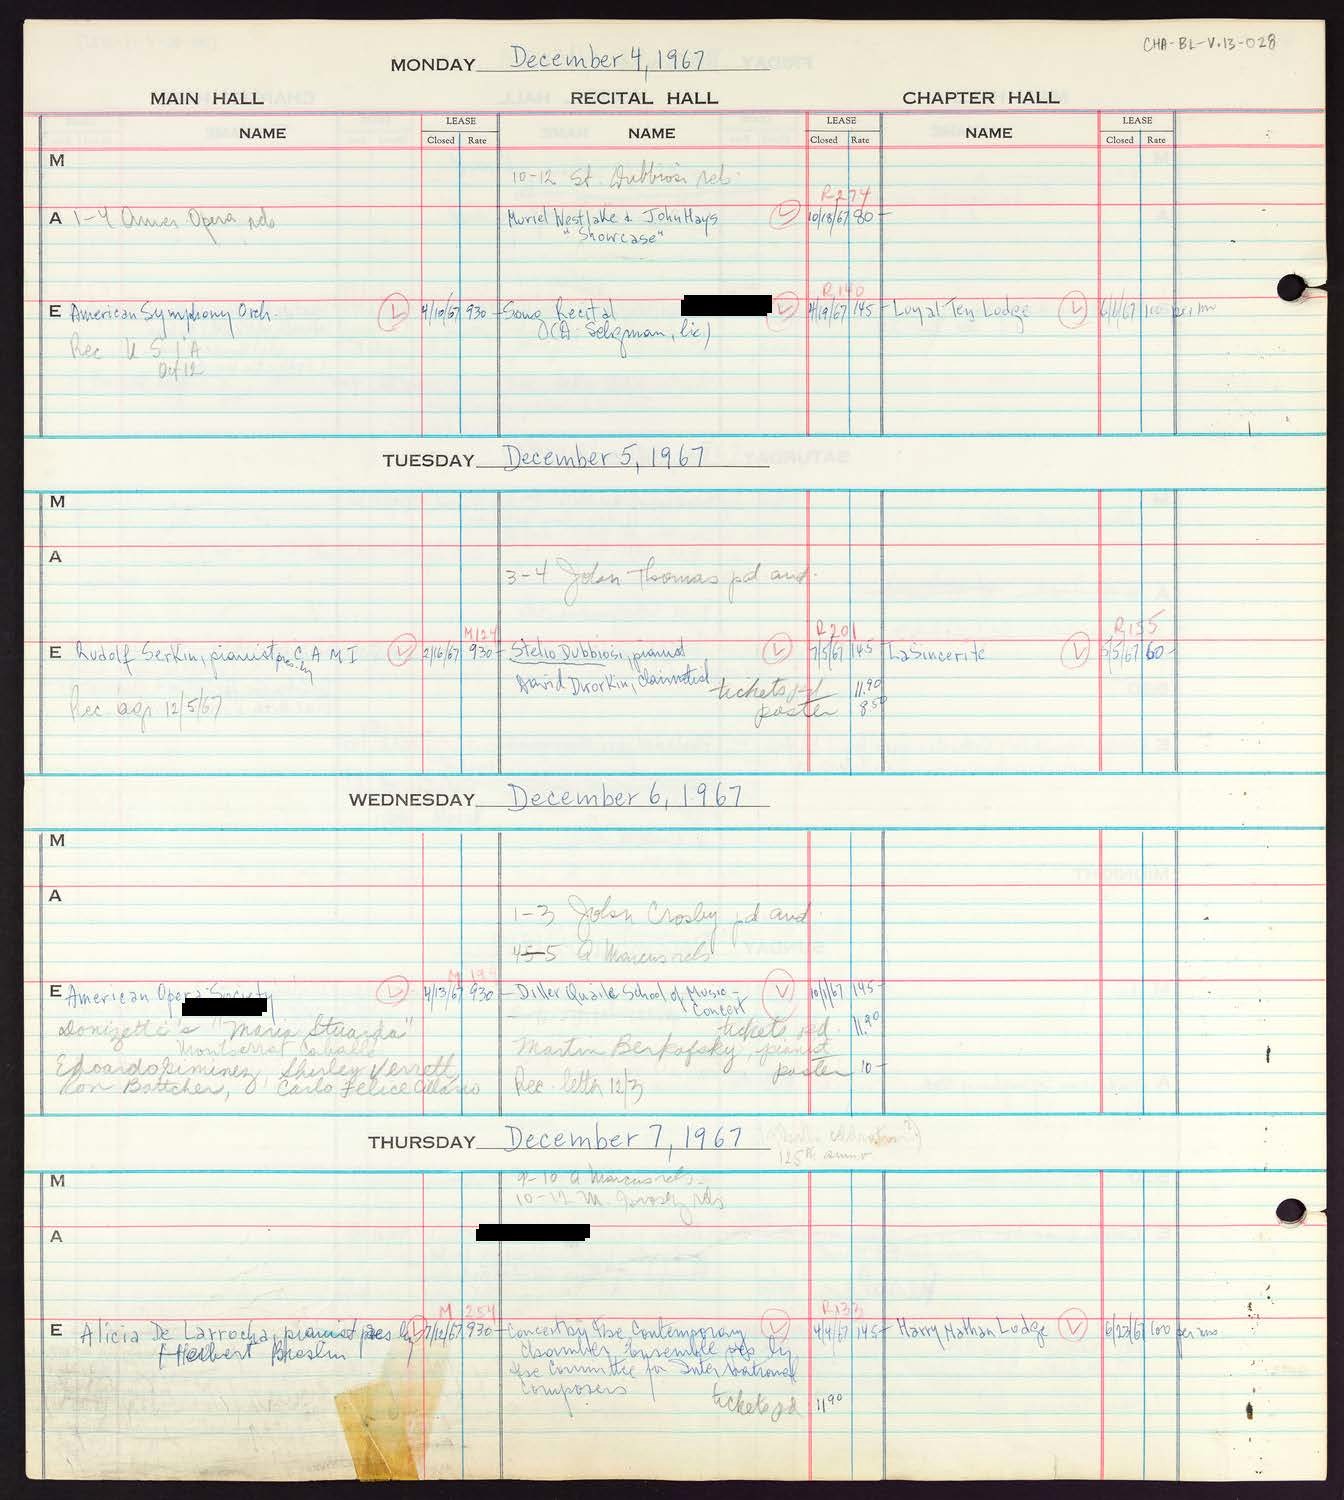 CHA-BL-V.13-028
MONDAY December 4, 1967
MAIN HALL RECITAL HALL CHAPTER HALL
NAME LEASE Closed Rate NAME LEASE Closed Rate NAME LEASE Closed Rate
M
10-12 St. Dubbiosi reh.
R274
A 1-4 Amer Opera reh Muriel Westlake & John Hays 10/18/67 80-
"Showcase"
R140
E American Symphony Orch. 4/10/67 930- Song Recital 4/19/67 145- Loyal Ten Lodge 6/1/67 100 per ann
(A. Selzman, lic)
Rec U S I A
Oct 12
TUESDAY December 5, 1967
M
A
3-4 John Thomas pd aud.
M124 R201 R155
E Rudolf Serkin, pianist pres. by C A M I 2/16/67 930- Stelio Dubbiosi, pianist 7/5/67 145 LaSincerite 5/5/67 60-
David Dworkin, clarinetist
Rec. agr 12/5/67 tickets pd 11.90
poster 8.50
WEDNESDAY December 6, 1967
M
A
1-3 John Crosby pd aud.
4-5 A Marcus reh
M 194
E American Opera Society 4/13/67 930- Diller Quaile School of Music - 10/1/67 145-
Concert
Donizetti's "Maria Stuarda" tickets pd. 11.90
Montserrat Caballe Martin Berkofsky, pianist
Edoardo Giminez, Shirley Verrett, poster 10-
Ron Bottcher, Carlo Felice Cillario Rec. letter 12/3
THURSDAY December 7, 1967
125th anniv
M 9-10 A Marcus reh.
10-12 M. Grosz reh
A
M 254 R133
E Alicia De Larrocha, pianist pres by 7/12/67 930- Concert by the Contemporary 4/4/67 145- Harry Nathan Lodge 6/23/67 100 per ann
Herbert Breslin Chamber Ensemble pres by
the Committee for International
Composers
tickets pd 11.90